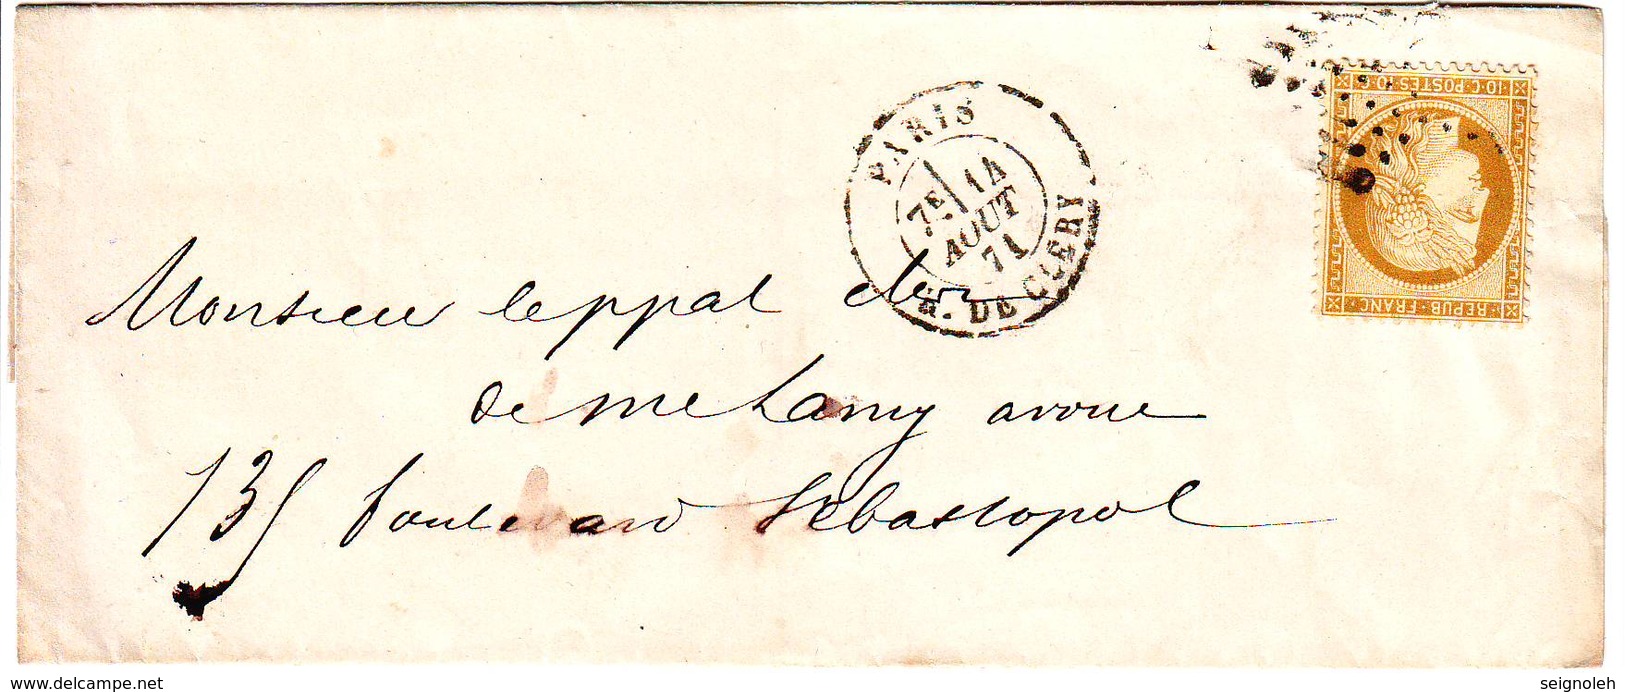 PARIS
7E 14
AOUT
71
R. DE CLERY
10·C·POSTES·10·C
REPUB·FRANC
Monsieur le ppal clerc
de Me Lamy avoué
135 boulevard Sébastopol
www.delcampe.net
seignoleh